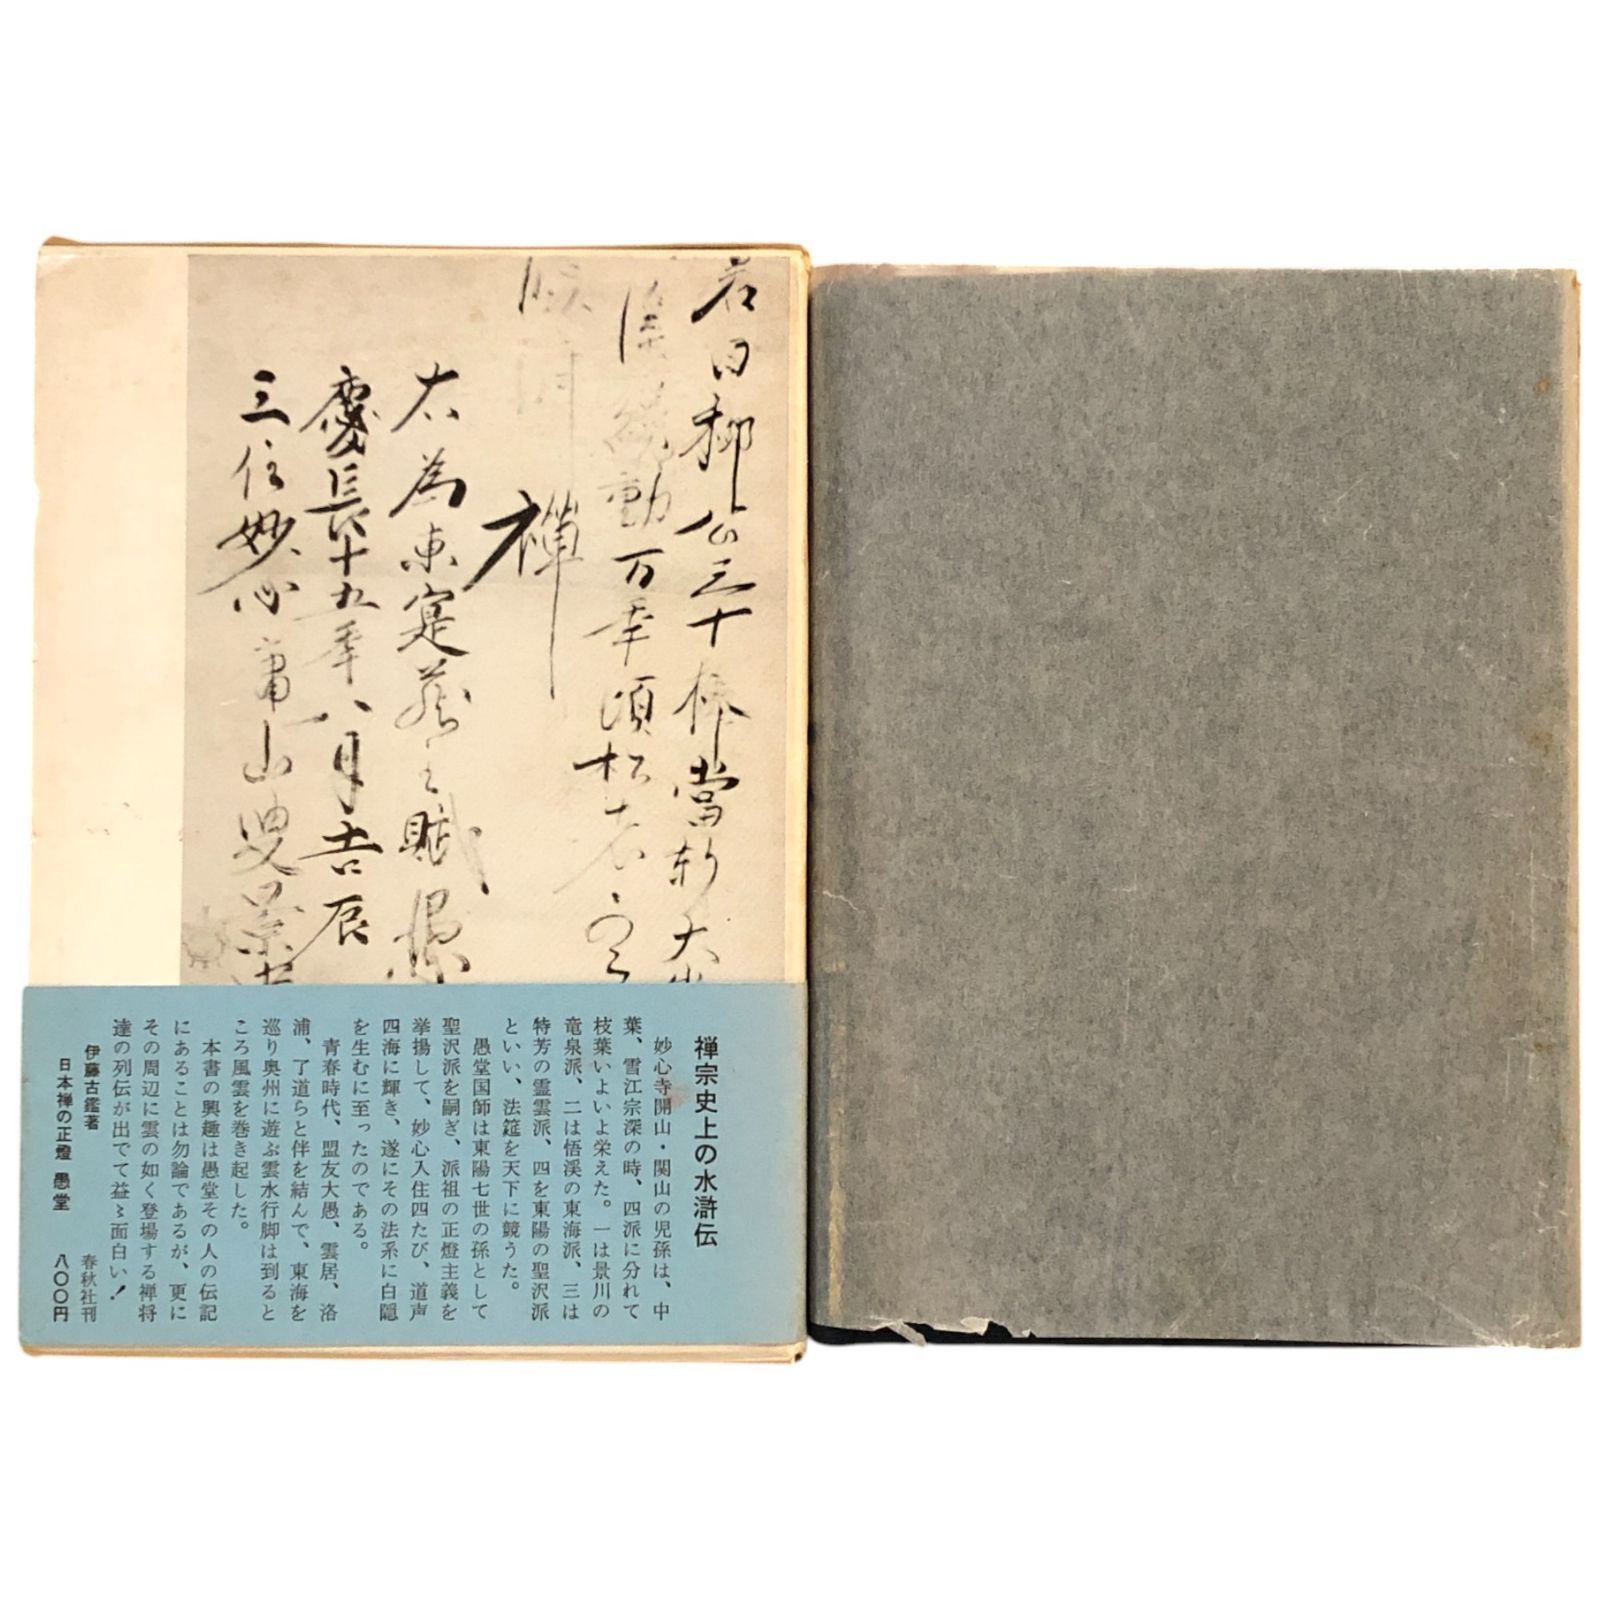 若曰柳公三十棒当新大
漢
動万年頂松老
禅
太為東
慶長十五年八月吉辰
三住妙心
山叟景
禅宗史上の水滸伝
妙心寺開山・関山の児孫は、中
葉、雪江宗深の時、四派に分れて
枝葉いよいよ栄えた。一は景川の
竜泉派、二は悟溪の東海派、三は
特芳の霊雲派、四を東陽の聖沢派
といい、法筵を天下に競うた。
愚堂国師は東陽七世の孫として
聖沢派を嗣ぎ、派祖の正燈主義を
挙揚して、妙心入住四たび、道声
四海に輝き、遂にその法系に白隠
を生むに至ったのである。
青春時代、盟友大愚、雲居、洛
浦、了道らと伴を結んで、東海を
巡り奥州に遊ぶ雲水行脚は到ると
ころ風雲を巻き起した。
本書の興趣は愚堂その人の伝記
にあることは勿論であるが、更に
その周辺に雲の如く登場する禅将
達の列伝が出でて益〻面白い！
伊藤古鑑著
日本禅の正燈 愚堂
春秋社刊
八〇〇円